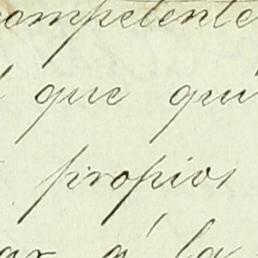 competente
que qui
propios
á la